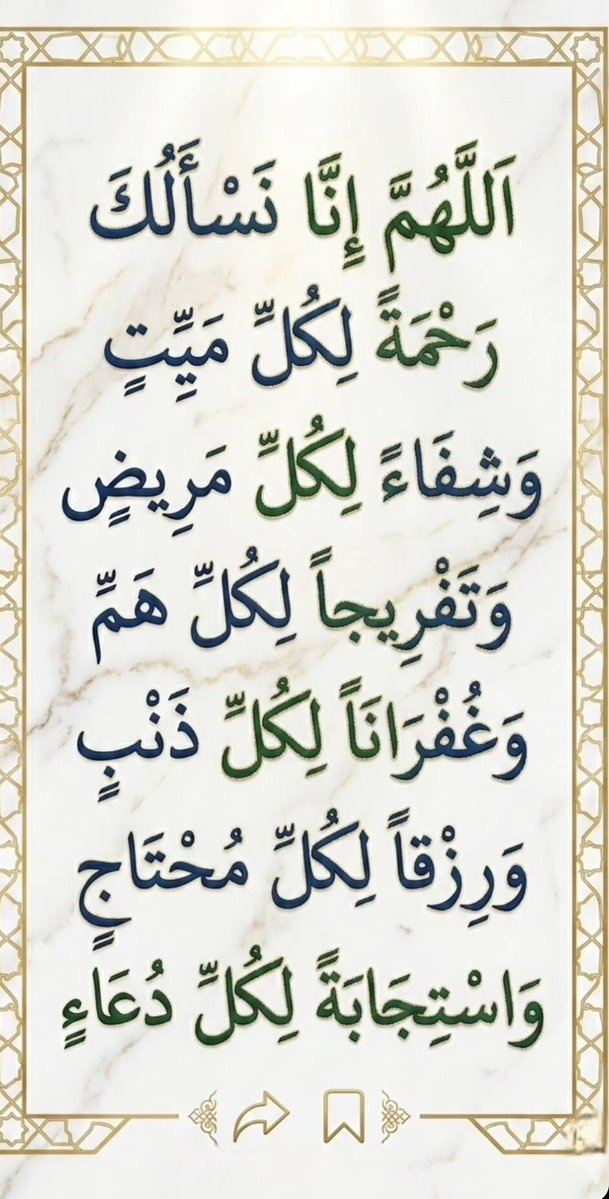 اَللَّهُمَّ إِنَّا نَسْأَلُكَ
رَحْمَةً لِكُلِّ مَيِّتٍ
وَشِفَاءً لِكُلِّ مَرِيضٍ
وَتَفْرِيجاً لِكُلِّ هَمِّ
وَغُفْرَانَاً لِكُلِّ ذَنْبٍ
وَرِزْقاً لِكُلِّ مُحْتَاجٍ
وَاسْتِجَابَةً لِكُلِّ دُعَاءٍ